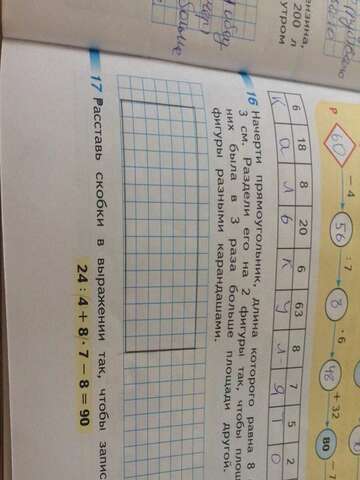 ензина,
200 л
утром
Больше
Р 60 – 4 56 : 7 8 · 6 48 + 32 80 – 7
6 18 8 20 6 63 8 7 5 2
К а л ь к у л я т о
16 Начерти прямоугольник, длина которого равна 8
3 см. Раздели его на 2 фигуры так, чтобы площ
них была в 3 раза больше площади другой.
фигуры разными карандашами.
17 Расставь скобки в выражении так, чтобы запис
24 : 4 + 8 · 7 – 8 = 90